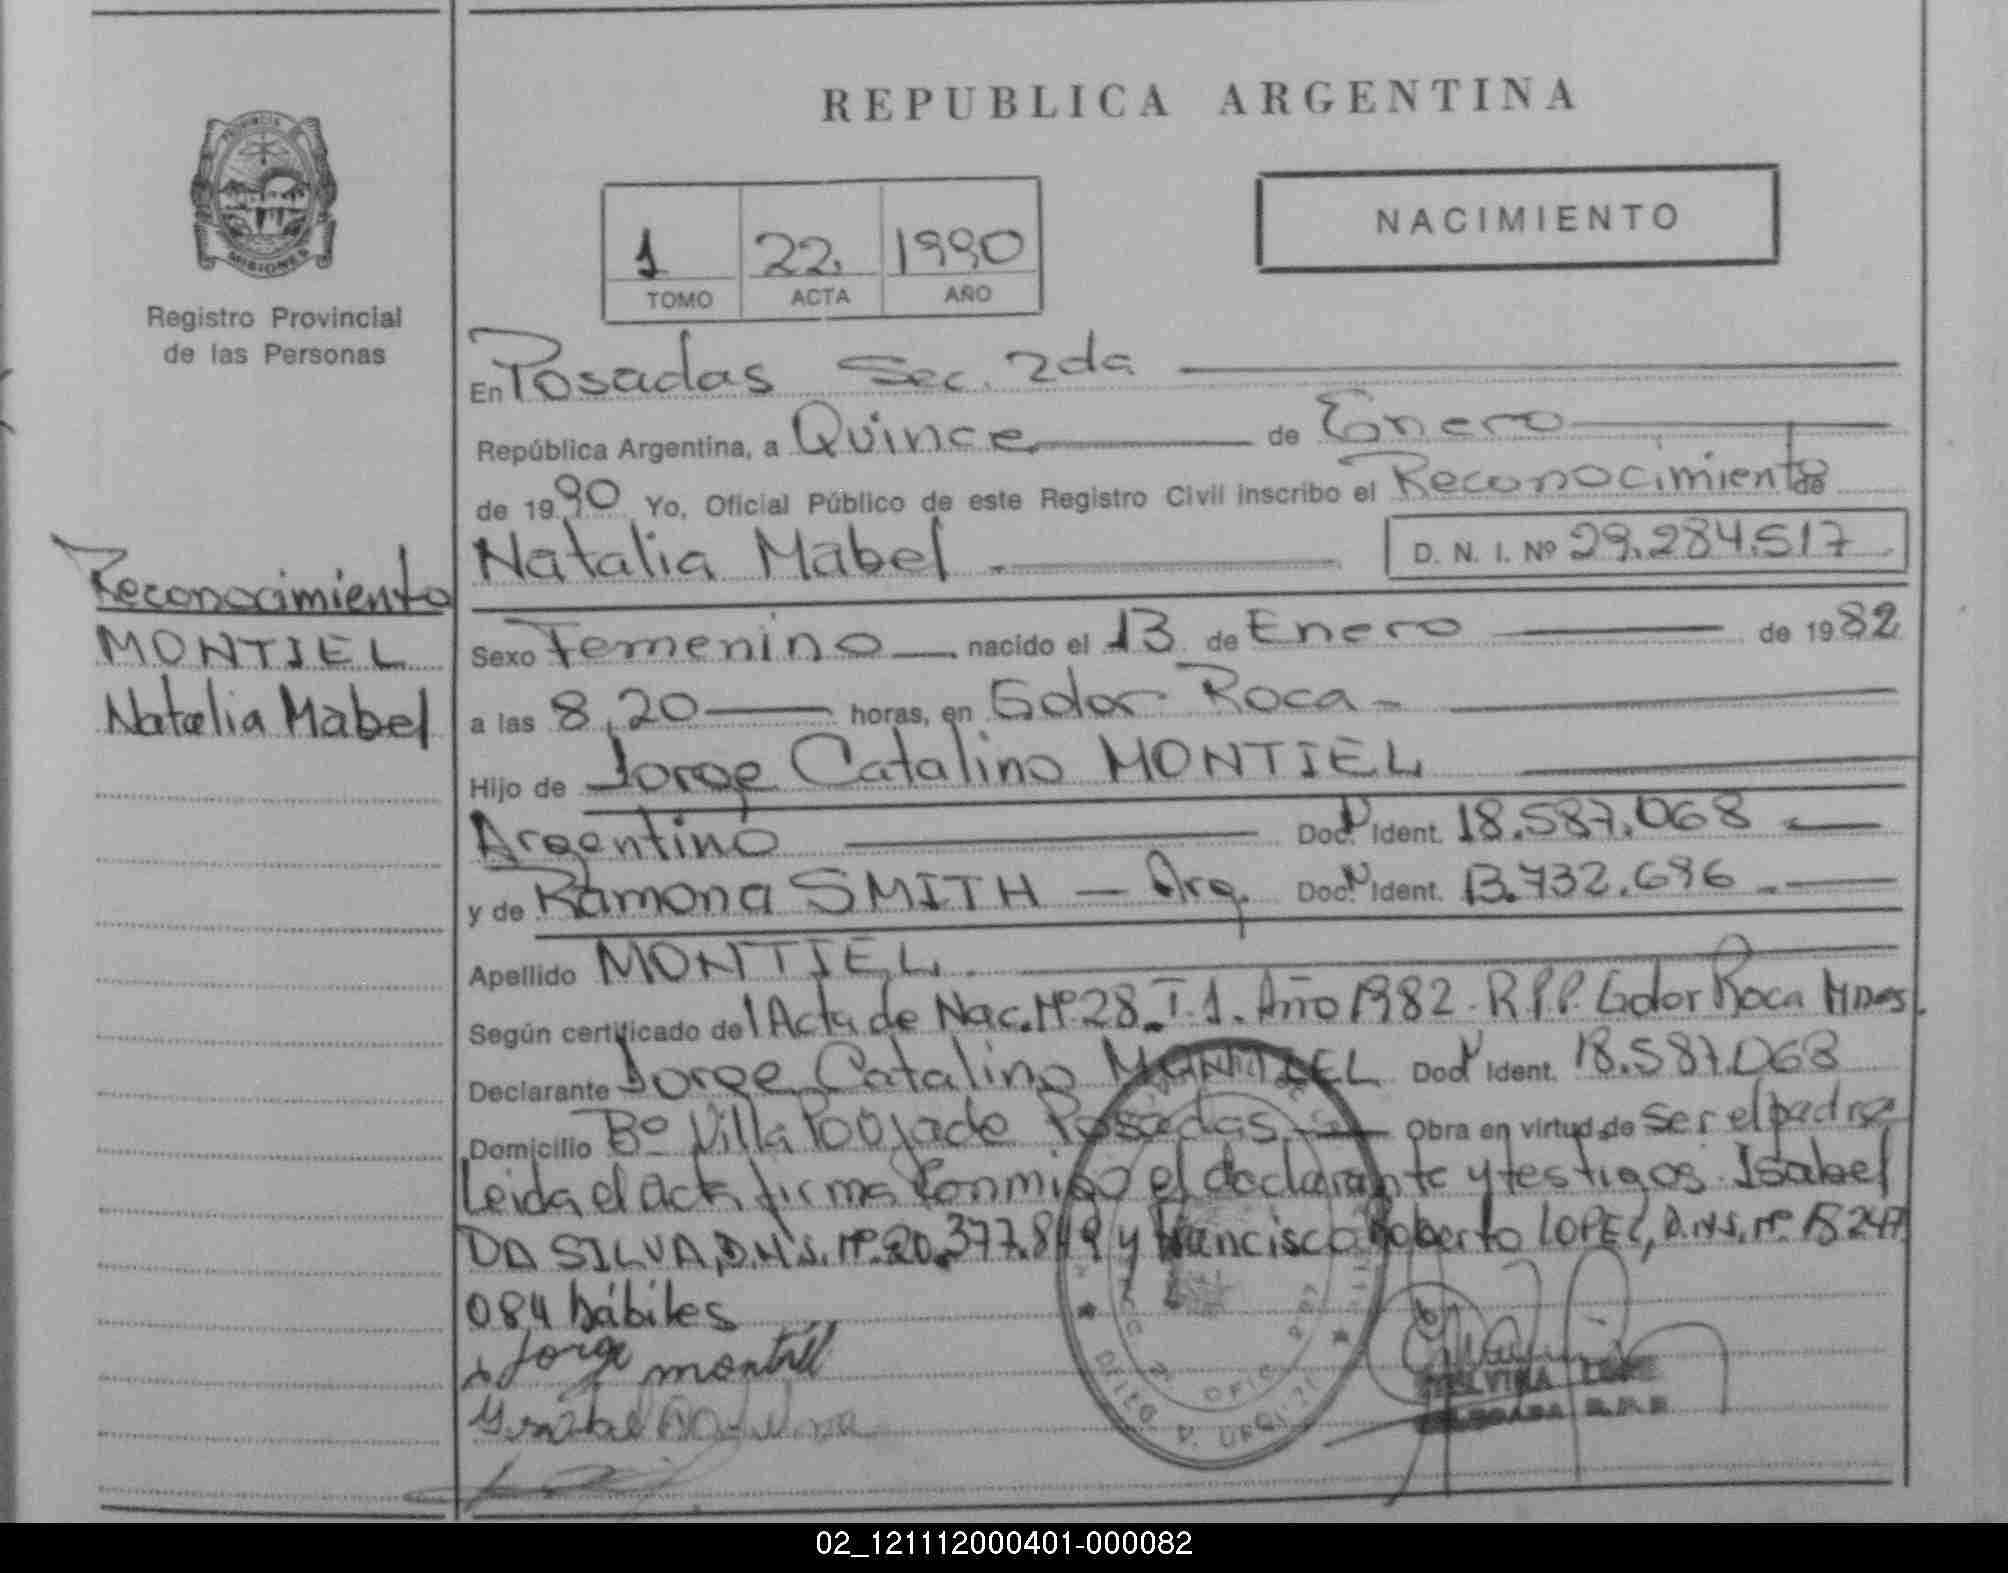 REPUBLICA ARGENTINA
PROVINCIA
MISIONES
Registro Provincial
de las Personas
1 22. 1990
TOMO ACTA AÑO
NACIMIENTO
En Posadas Sec. 2da
República Argentina, a Quince de Enero
de 1990 Yo, Oficial Público de este Registro Civil inscribo el Reconocimiento de
Natalia Mabel D. N. I. Nº 29.284.517
Reconocimiento
MONTIEL
Natalia Mabel
Sexo Femenino nacido el 13 de Enero de 1982
a las 8,20 horas, en Gdor Roca
Hijo de Jorge Catalino MONTIEL
Argentino Doc. Ident. 18.587.068
y de Ramona SMITH — Arg. Doc. Ident. 13.732.696
Apellido MONTIEL
Según certificado del Acta de Nac. Nº 28. T. 1. Año 1982. R.P.P. Gdor Roca Mnes.
Declarante Jorge Catalino MONTIEL Doc. Ident. 18.587.068
Domicilio Bº Villa Poujade Posadas Obra en virtud de ser el padre
Leida el acta firma conmigo el declarante y testigos Isabel
DA SILVA, D.N.I. Nº 20.377.849 y Francisco Roberto LOPEZ, D.N.I. Nº 18 247
084 hábiles
Jorge montiel
02_121112000401-000082